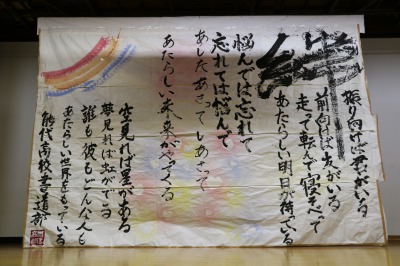 絆
振り向けば君がいる
前向けば友がいる
走って転んで寝そべって
あたらしい明日が待っている
悩んでは忘れて
忘れては悩んで
あしたあさってしあさって
あたらしい未来がやってくる
空見れば星がある
夢見れば虹がでる
誰も彼もどんな人も
あたらしい世界をもっている
能代高校書道部